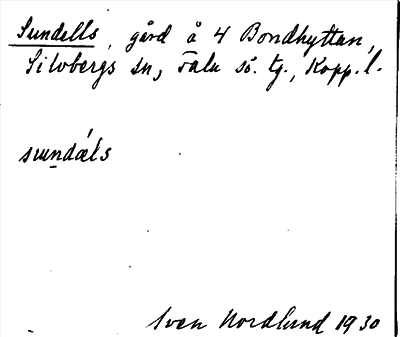 Sundells, gård å 4 Bondhyttan,
Silvbergs sn, Falu sö. tg., Kopp. l.
sundæls
Sven Nordlund 1930